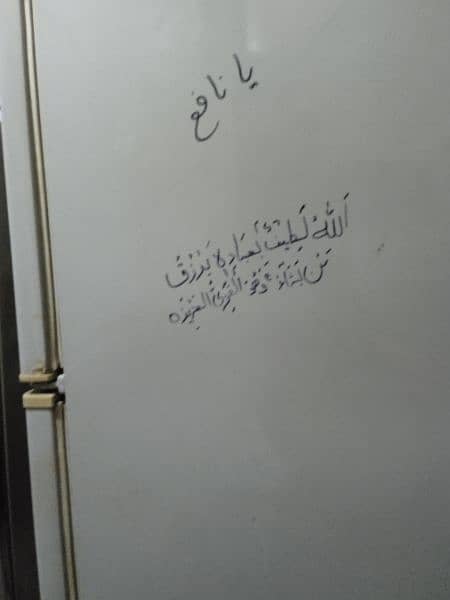 یا نافع
اَللّٰهُ لَطِیْفٌ بِعِبَادِهٖ یَرْزُقُ
مَنْ یَّشَآءُ وَهُوَ الْقَوِیُّ الْعَزِیْزُ